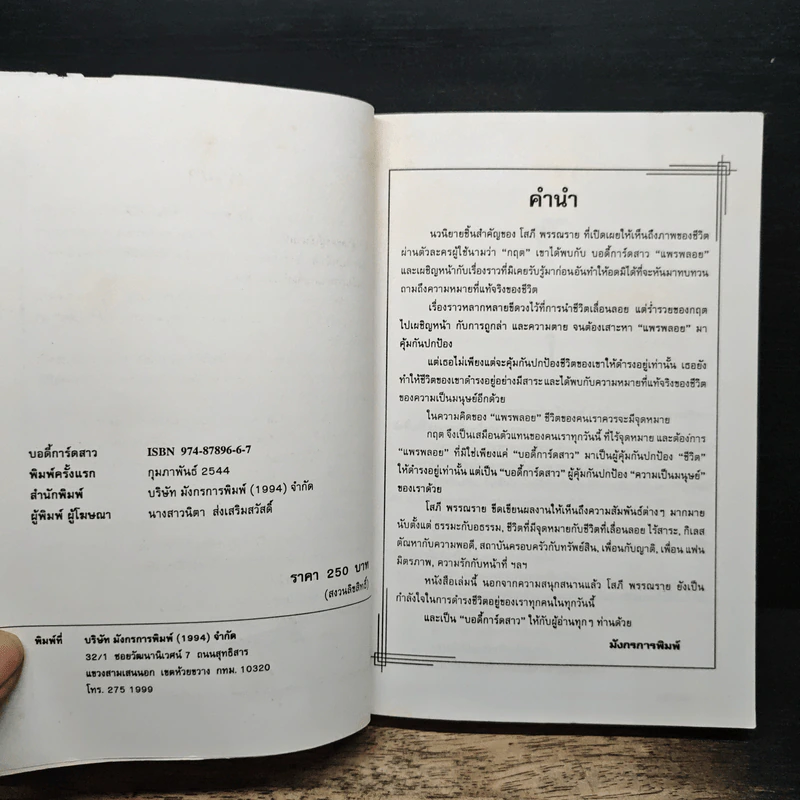 บอดี้การ์ดสาว ISBN 974-87896-6-7
พิมพ์ครั้งแรก กุมภาพันธ์ 2544
สำนักพิมพ์ บริษัท มังกรการพิมพ์ (1994) จำกัด
ผู้พิมพ์ ผู้โฆษณา นางสาวนิตา ส่งเสริมสวัสดิ์
ราคา 250 บาท
(สงวนลิขสิทธิ์)
พิมพ์ที่ บริษัท มังกรการพิมพ์ (1994) จำกัด
32/1 ซอยวัฒนานิเวศน์ 7 ถนนสุทธิสาร
แขวงสามเสนนอก เขตห้วยขวาง กทม. 10320
โทร. 275 1999
คำนำ
นวนิยายชิ้นสำคัญของ โสภี พรรณราย ที่เปิดเผยให้เห็นถึงภาพของชีวิต
ผ่านตัวละครผู้ใช้นามว่า "กฤต" เขาได้พบกับ บอดี้การ์ดสาว "แพรพลอย"
และเผชิญหน้ากับเรื่องราวที่มิเคยรับรู้มาก่อนอันทำให้อดมิได้ที่จะหันมาทบทวน
ถามถึงความหมายที่แท้จริงของชีวิต
เรื่องราวหลากหลายขีดวงไว้ที่การนำชีวิตเลื่อนลอย แต่ร่ำรวยของกฤต
ไปเผชิญหน้า กับการถูกล่า และความตาย จนต้องเสาะหา "แพรพลอย" มา
คุ้มกันปกป้อง
แต่เธอไม่เพียงแต่จะคุ้มกันปกป้องชีวิตของเขาให้ดำรงอยู่เท่านั้น เธอยัง
ทำให้ชีวิตของเขาดำรงอยู่อย่างมีสาระและได้พบกับความหมายที่แท้จริงของชีวิต
ของความเป็นมนุษย์อีกด้วย
ในความคิดของ "แพรพลอย" ชีวิตของคนเราควรจะมีจุดหมาย
กฤต จึงเป็นเสมือนตัวแทนของคนเราทุกวันนี้ ที่ไร้จุดหมาย และต้องการ
"แพรพลอย" ที่มิใช่เพียงแค่ "บอดี้การ์ดสาว" มาเป็นผู้คุ้มกันปกป้อง "ชีวิต"
ให้ดำรงอยู่เท่านั้น แต่เป็น "บอดี้การ์ดสาว" ผู้คุ้มกันปกป้อง "ความเป็นมนุษย์"
ของเราด้วย
โสภี พรรณราย ขีดเขียนผลงานให้เห็นถึงความสัมพันธ์ต่างๆ มากมาย
นับตั้งแต่ ธรรมะกับอธรรม, ชีวิตที่มีจุดหมายกับชีวิตที่เลื่อนลอย ไร้สาระ, กิเลส
ตัณหากับความพอดี, สถาบันครอบครัวกับทรัพย์สิน, เพื่อนกับญาติ, เพื่อน แฟน
มิตรภาพ, ความรักกับหน้าที่ ฯลฯ
หนังสือเล่มนี้ นอกจากความสนุกสนานแล้ว โสภี พรรณราย ยังเป็น
กำลังใจในการดำรงชีวิตอยู่ของเราทุกคนในทุกวันนี้
และเป็น "บอดี้การ์ดสาว" ให้กับผู้อ่านทุกๆ ท่านด้วย
มังกรการพิมพ์